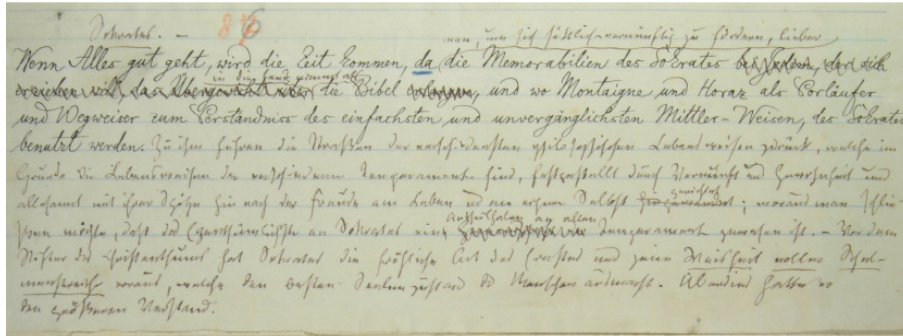 Sokrates. — 86
man, um sich sittlich-vernünftig zu fördern, lieber
Wenn Alles gut geht, wird die Zeit kommen, da die Memorabilien des Sokrates der sich
in die Hand nimmt als
die Bibel, und wo Montaigne und Horaz als Vorläufer
und Wegweiser zum Verständniss des einfachsten und unvergänglichsten Mittler-Weisen, des Sokrates
benutzt werden. Zu ihm führen die Strassen der verschiedensten philosophischen Lebensweisen zurück, welche im
Grunde die Lebensweisen der verschiedenen Temperamente sind, festgestellt durch Vernunft und Gewohnheit und
allesammt mit ihrer Spitze hin nach der Freude am Leben und am eignen Selbst gerichtet; woraus man schlie-
Antheilhaben an allen
ssen möchte, dass das Eigenthümlichste an Sokrates ein Temperament gewesen ist. — Vor dem
Stifter des Christenthums hat Sokrates die fröhliche Art des Ernstes und jene Weisheit voller Schel-
menstreiche voraus, welche den besten Seelenzustand des Menschen ausmacht. Überdies hatte er
den grösseren Verstand.